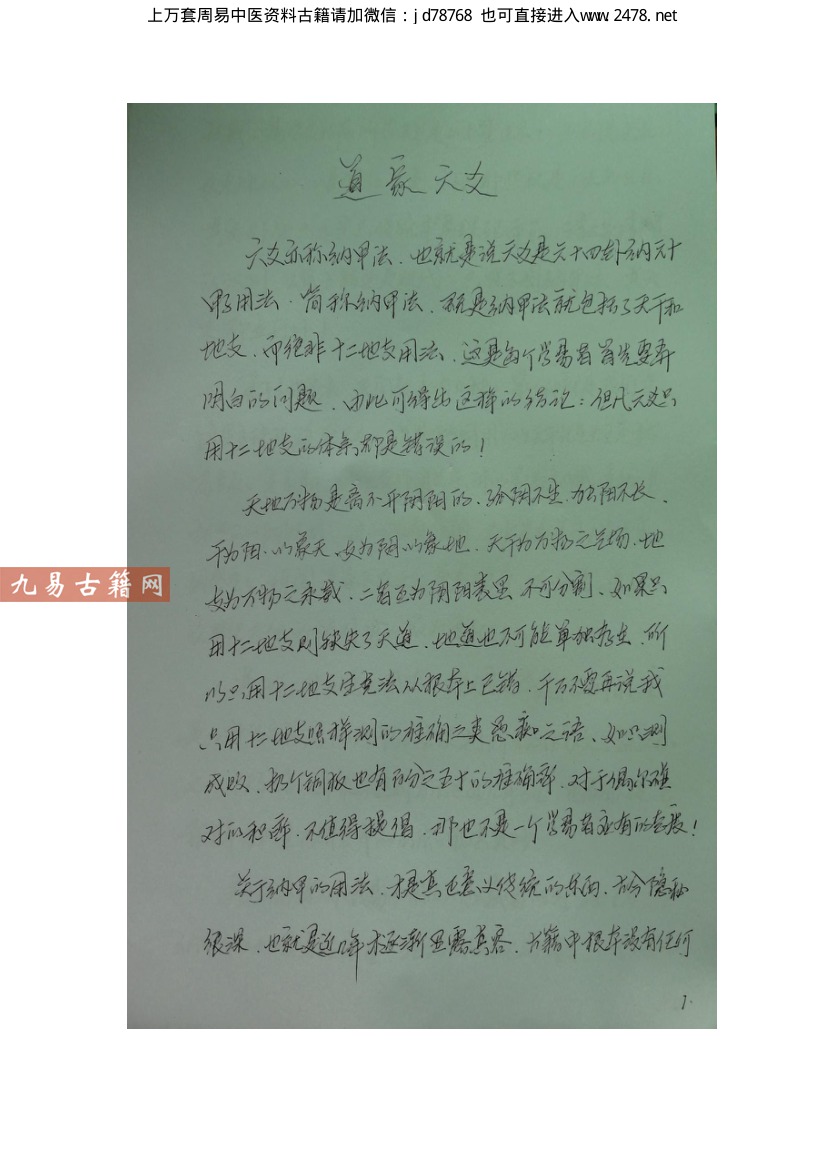 上万套周易中医资料古籍请加微信：jd78768 也可直接进入www.2478.net
道家六爻
六爻亦称纳甲法，也就是说六爻是六十四卦纳六十
甲子用法，简称纳甲法，既是纳甲法就包括了天干和
地支，而绝非十二地支用法，这是每个学易者首先要弄
明白的问题，由此可得出这样的结论：但凡六爻只
用十二地支的体系都是错误的！
天地万物是离不开阴阳的，孤阴不生，独阳不长，
干为阳，以象天，支为阴以象地，天干为万物之气场，地
支为万物之承载，二者互为阴阳表里，不可分割，如果只
用十二地支则缺失了天道，地道也不可能单独存在，所
以只用十二地支生克法从根本上已错，千万不要再说我
只用十二地支照样测的准确之类愚痴之语，如只测
成败，扔个铜板也有百分之五十的准确率，对于偶尔碰
对的积率，不值得提倡，那也不是一个学易者应有的态度！
关于纳甲的用法，才是真正意义传统的东西，古今隐秘
很深，也就是近几年才逐渐显露真容，古籍中根本没有任何
1.
九易古籍网